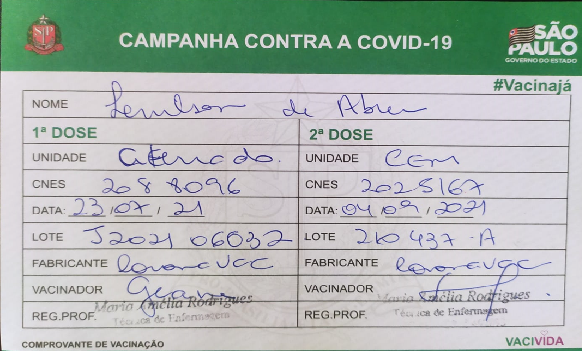 SP
CAMPANHA CONTRA A COVID-19
SÃO PAULO
GOVERNO DO ESTADO
#Vacinajá
NOME de Abreu
1ª DOSE 2ª DOSE
UNIDADE UNIDADE CEM
CNES 2088096 CNES 2025167
DATA: 23/07/21 DATA: 04/09/2021
LOTE J2021 06032 LOTE 210437-A
FABRICANTE Coronavac FABRICANTE Coronavac
VACINADOR VACINADOR
Maria Amélia Rodrigues Maria Amélia Rodrigues
REG.PROF. Técnica de Enfermagem REG.PROF. Técnica de Enfermagem
COMPROVANTE DE VACINAÇÃO VACIVIDA